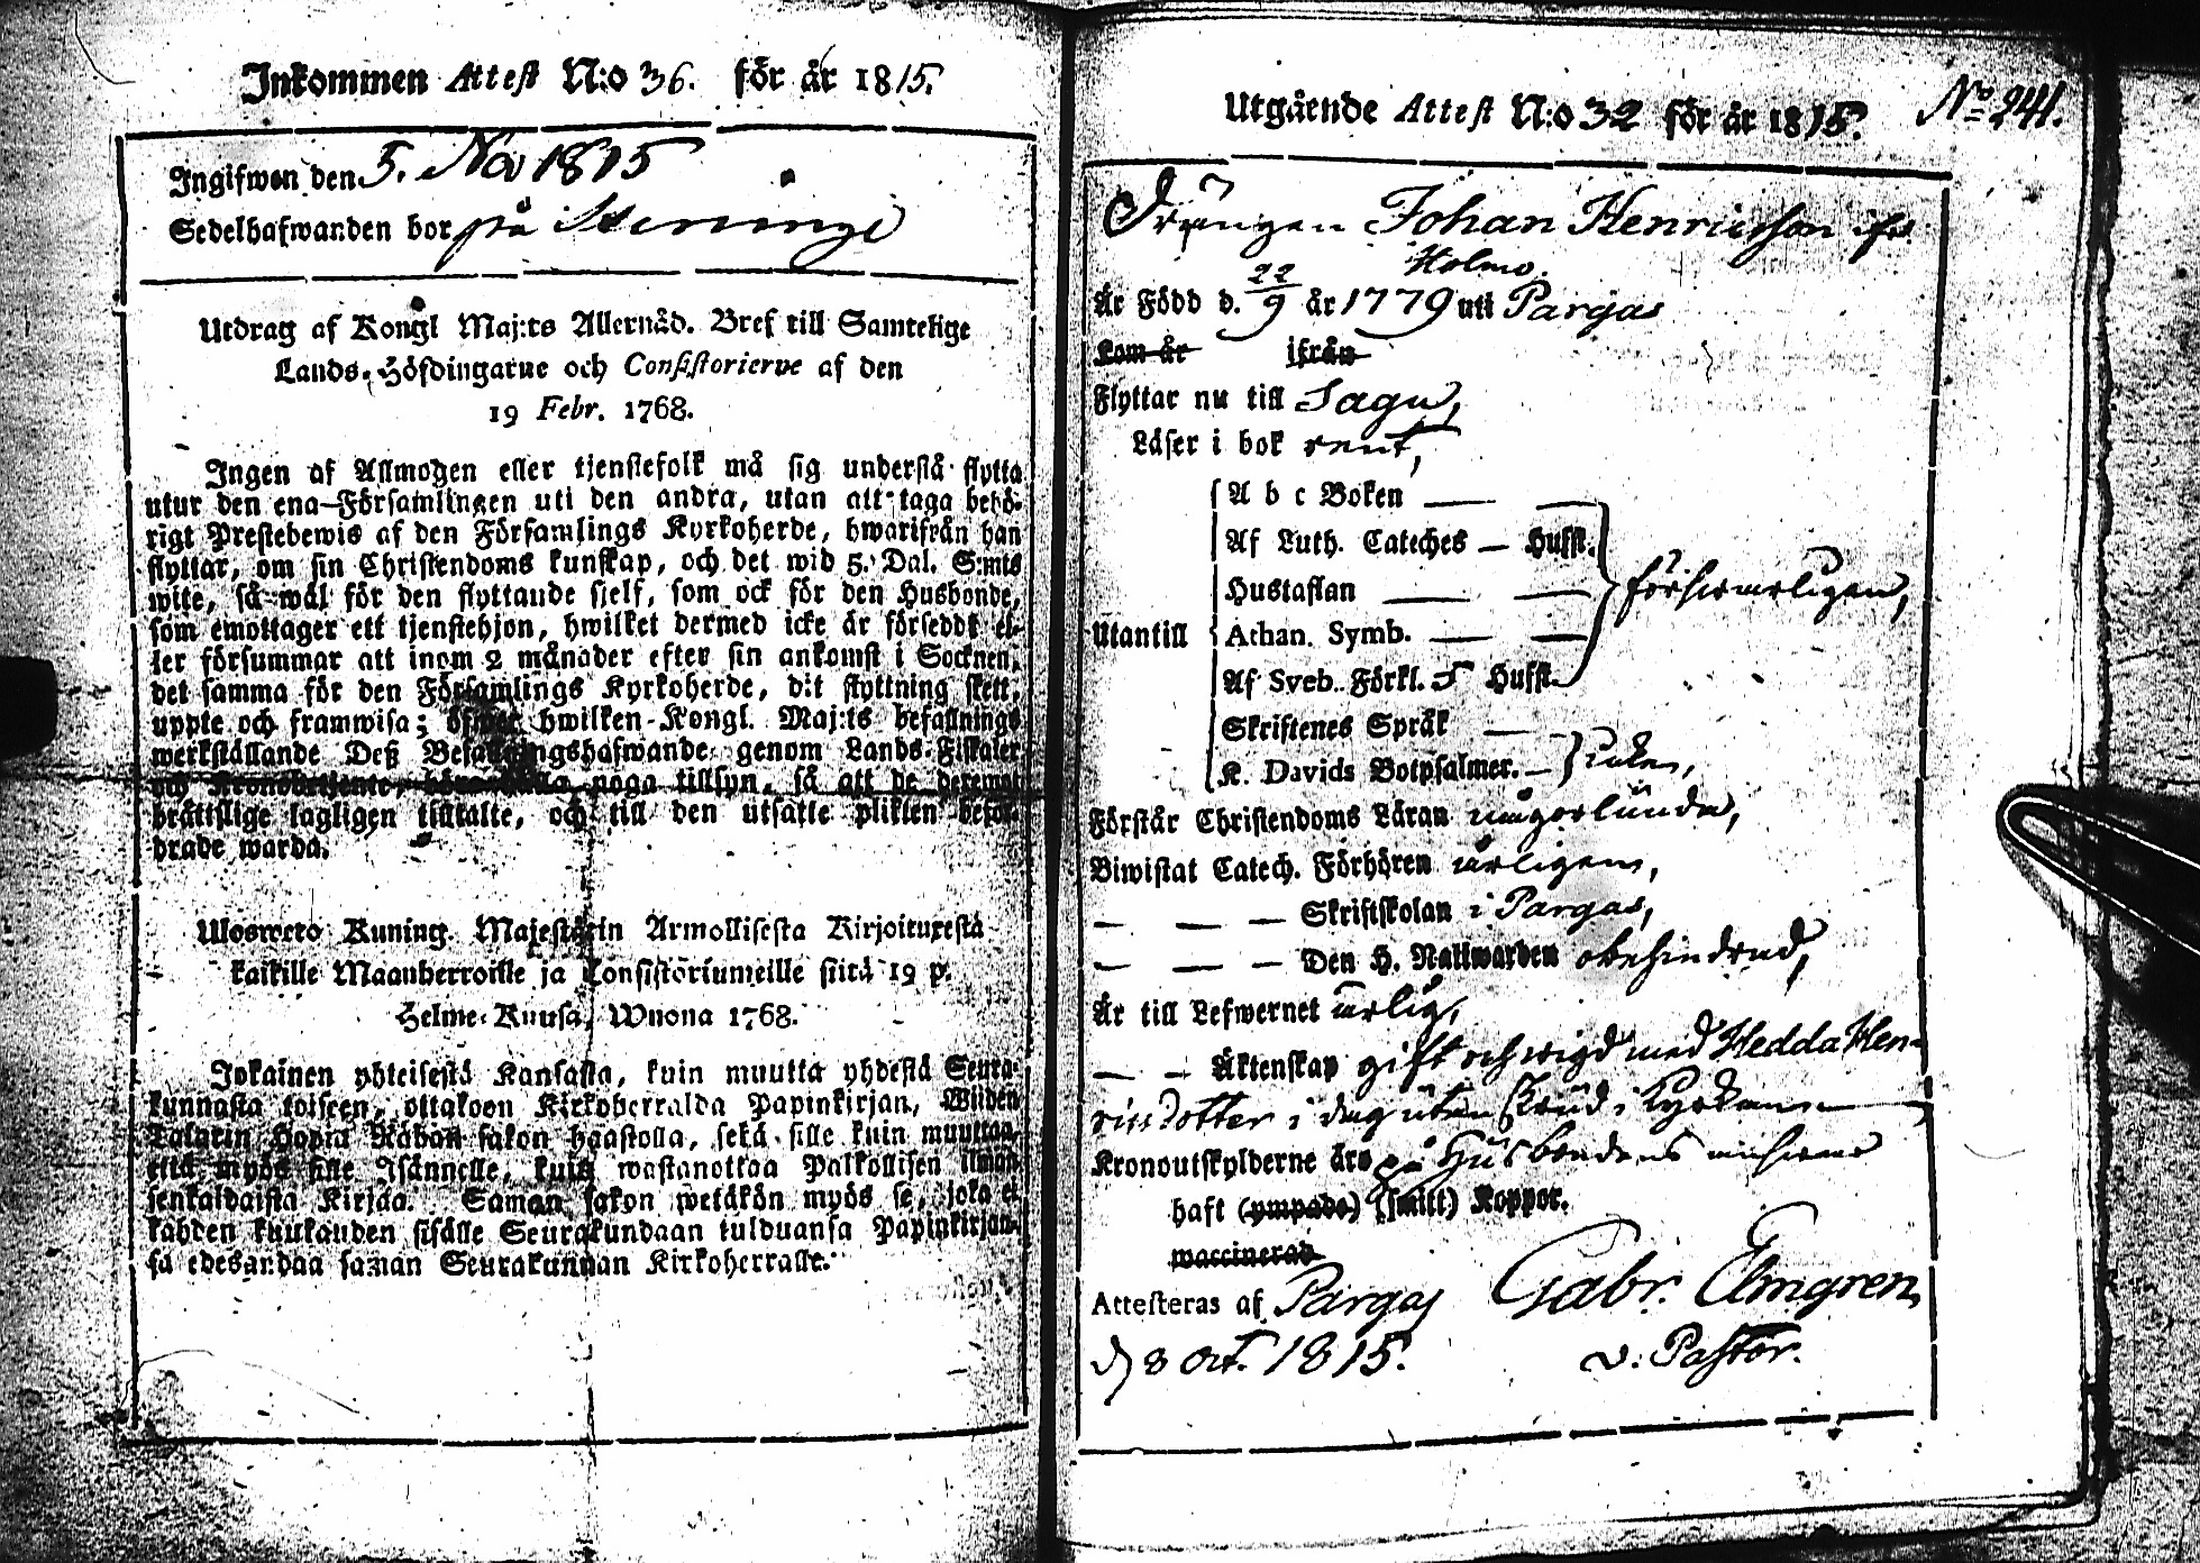 Inkommen Attest N:o 36. för år 1815.
Ingifwen den 5. Nov 1815
Sedelhafwanden bor på
Utdrag af Kongl Maj:ts Allernåd. Bref till Samtelige
Lands-Höfdingarne och Consistorierne af den
19 Febr. 1768.
Ingen af Allmogen eller tjenstefolk må sig understå flytta
utur den ena Församlingen uti den andra, utan att taga behö-
rigt Prestebewis af den Församlings Kyrkoherde, hwarifrån han
flyttar, om sin Christendoms kunskap, och det wid 5. Dal. S:mts
wite, så wäl för den flyttande sjelf, som ock för den Husbonde,
som emottager ett tjenstehjon, hwilket dermed icke är försedt el-
ler försummar att inom 2 månader efter sin ankomst i Socknen,
det samma för den Församlings Kyrkoherde, dit flyttning skett,
uppte och framwisa; öfwer hwilken Kongl. Maj:ts befallnings
werkställande Deß Befallningshafwande genom Lands-Fiskaler
och Kronobetjente, böra hålla noga tillsyn, så att de deremot
brättslige lagligen tilltalte, och till den utsatte plikten befor-
drade warda.
Ulosweto Kuning. Majestätin Armollisesta Kirjoituxesta
kaikille Maanherroille ja Consistoriumeille siitä 19 p.
Helme-Kuusa, Wuona 1768.
Jokainen yhteisestä Kansasta, kuin muutta yhdestä Seura-
kunnasta toiseen, ottakoon Kirkoherralda Papinkirjan, Wiiden
Talarin Hopia Rahan sakon haastolla, sekä sille kuin muuttaa,
että myös sille Isännelle, kuin wastanottaa Palkollisen ilman
senkaldaista Kirjaa. Saman sakon wetäkön myös se, joka ei
kahden kuukauden sisälle Seurakundaan tulduansa Papinkirjan-
sa edesandaa saman Seurakunnan Kirkoherralle.
Utgående Attest N:o 32 för år 1815. No 241.
Drängen Johan Henricsson ifr.
Holmo.
Är Född d. 22/9 år 1779 uti Pargas
Kom år ifrån
Flyttar nu till Sagu,
Läser i bok rent,
A b c Boken
Af Luth. Cateches — Hufst.
Hustaflan försvarligen,
Utantill Athan. Symb.
Af Sveb. Förkl. 5 Hufst.
Skriftenes Språk
K. Davids Botpsalmer.
Förstår Christendoms Läran någorlunda,
Biwistat Catech. Förhören årligen,
— — — Skriftskolan i Pargas,
— — — Den H. Nattwarden obehindrad,
Är till Lefwernet ärlig,
— — Äktenskap gift och wigd med Hedda Hen-
ricsdotter i dag utan skrud i Kyrkan
Kronoutskylderne äro på Husbondens
haft (ympade) (smitt) Koppor.
waccinerad
Attesteras af Pargas Gabr. Elmgren,
d 8 Oct. 1815. v. Pastor.